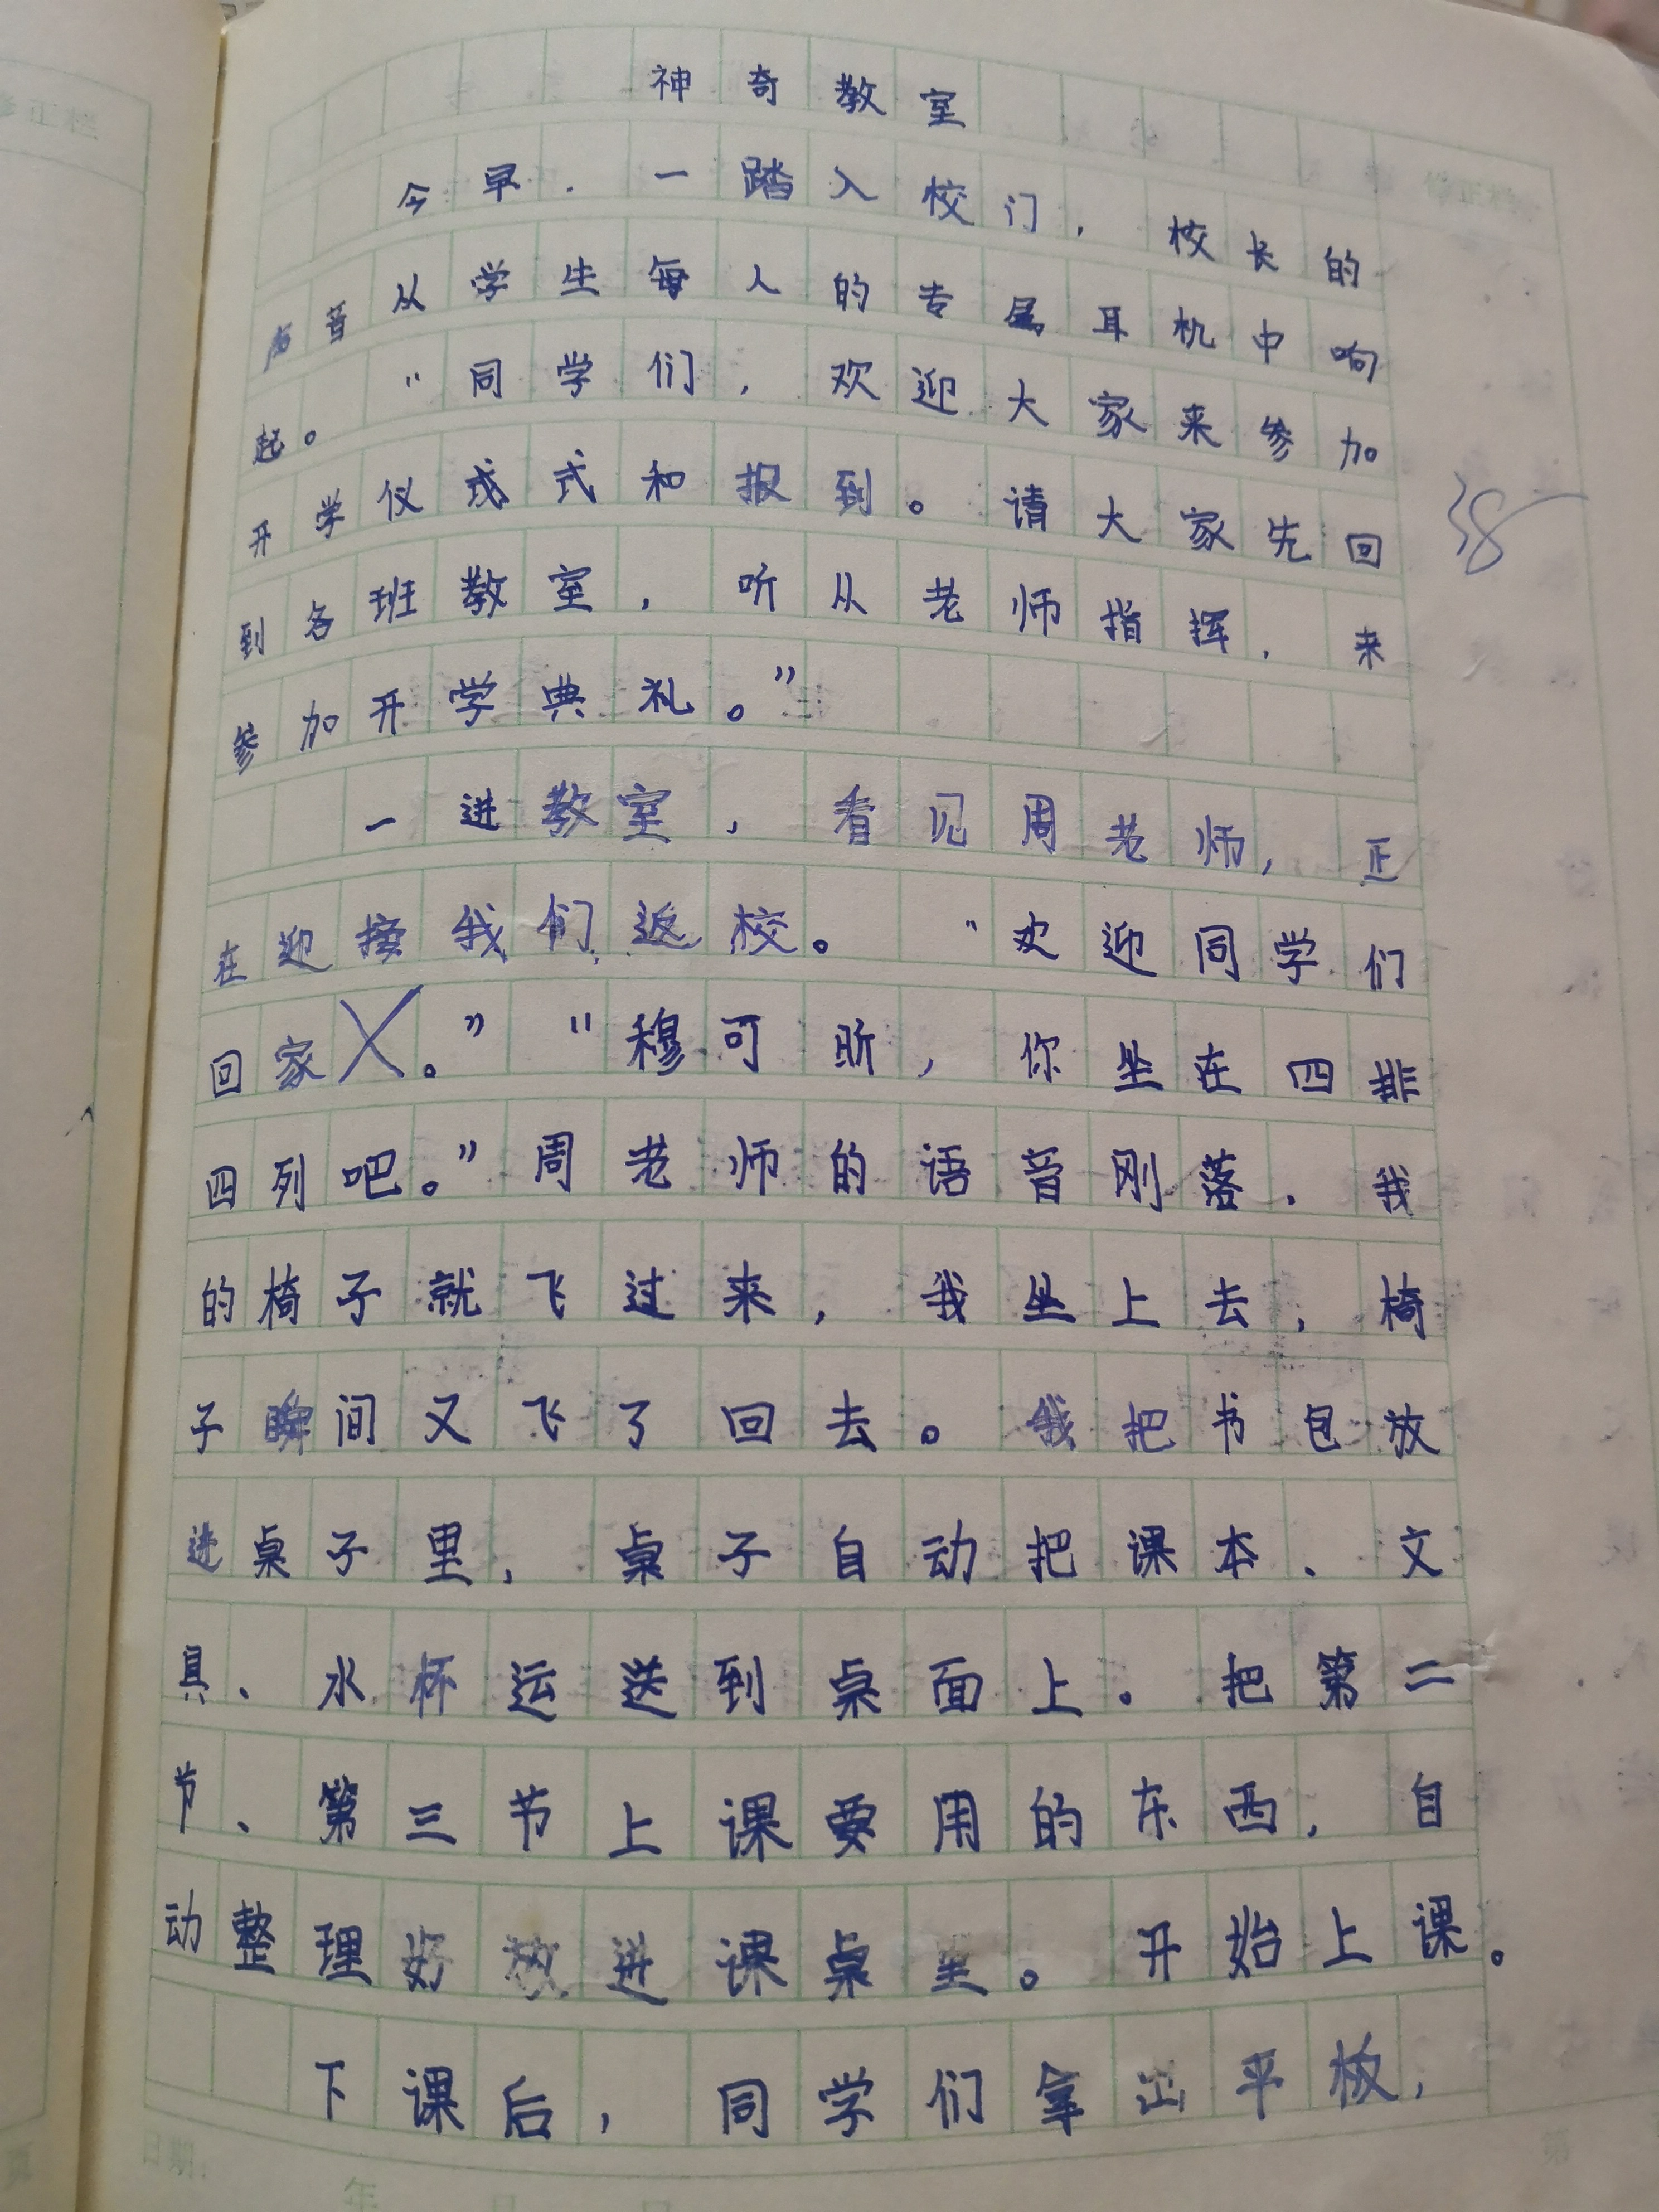 神奇教室
今早，一踏入校门，校长的
声音从学生每人的专属耳机中响
起。“同学们，欢迎大家来参加
开学仪式和报到。请大家先回
到各班教室，听从老师指挥，来
参加开学典礼。”
一进教室，看见周老师，正
在迎接我们返校。“欢迎同学们
回家。”“穆可昕，你坐在四排
四列吧。”周老师的语音刚落，我
的椅子就飞过来，我坐上去，椅
子瞬间又飞了回去。我把书包放
进桌子里，桌子自动把课本、文
具、水杯运送到桌面上。把第二
节、第三节上课要用的东西，自
动整理好放进课桌里。开始上课。
下课后，同学们拿出平板，
38
日期：
年 月 日
第